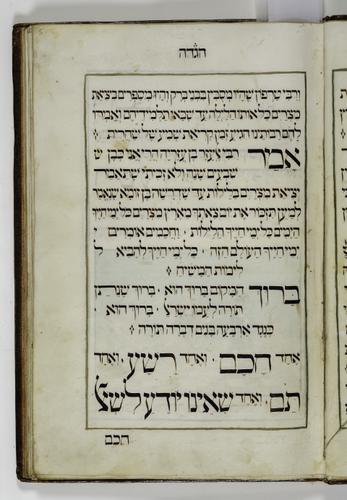 הגדה
ורבי טרפון שהיו מסבין בבני ברק והיו מספרים ביציאת
מצרים כל אותו הלילה עד שבאו תלמידיהם ואמרו
להם רבותינו הגיע זמן קריאת שמע של שחרית :
אמר רבי אלעזר בן עזריה הרי אני כבן ש
שבעים שנה ולא זכיתי שתאמר
יציאת מצרים בלילות עד שדרשה בן זומא שנאמר
למען תזכור את יום צאתך מארץ מצרים כל ימי חייך
הימים כל ימי חייך הלילות · וחכמים אומרים י
ימי חייך העולם הזה · כל ימי חייך להביא ל
לימות המשיח :
ברוך המקום ברוך הוא · ברוך שנתן
תורה לעמו ישראל · ברוך הוא ·
כנגד ארבעה בנים דברה תורה :
אחד חכם · ואחד רשע · ואחד
תם · ואחד שאינו יודע לשא
חכם